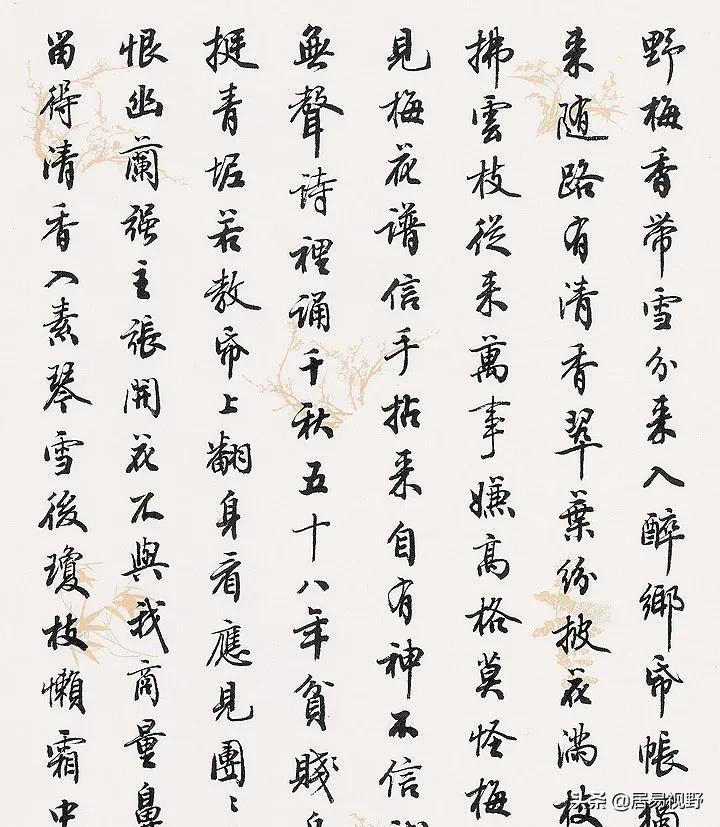 野梅香帶雪分来入醉鄉帋帳
来随路有清香翠葉紛披花满枝
拂雲枝從来萬事嫌高格莫怪梅
見梅花譜信手拈来自有神不信
無聲詩裡誦千秋五十八年貧賤
挺青琚若教帋上翻身看應見團〻
恨幽蘭強主張開花不與我商量鼻
留得清香入素琴雪後瓊枝懶霜中
头条 @居易视野